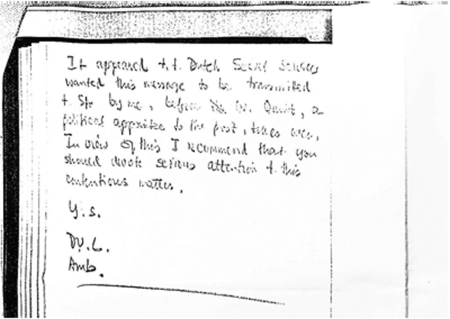 It appeared t.t. Dutch Secret Services
wanted this message to be transmitted
t. by me, before Mr.
political appointee to the post, takes over.
In view of this I recommend that you
should devote serious attention to this
contentious matter.
Y.S.
Amb.